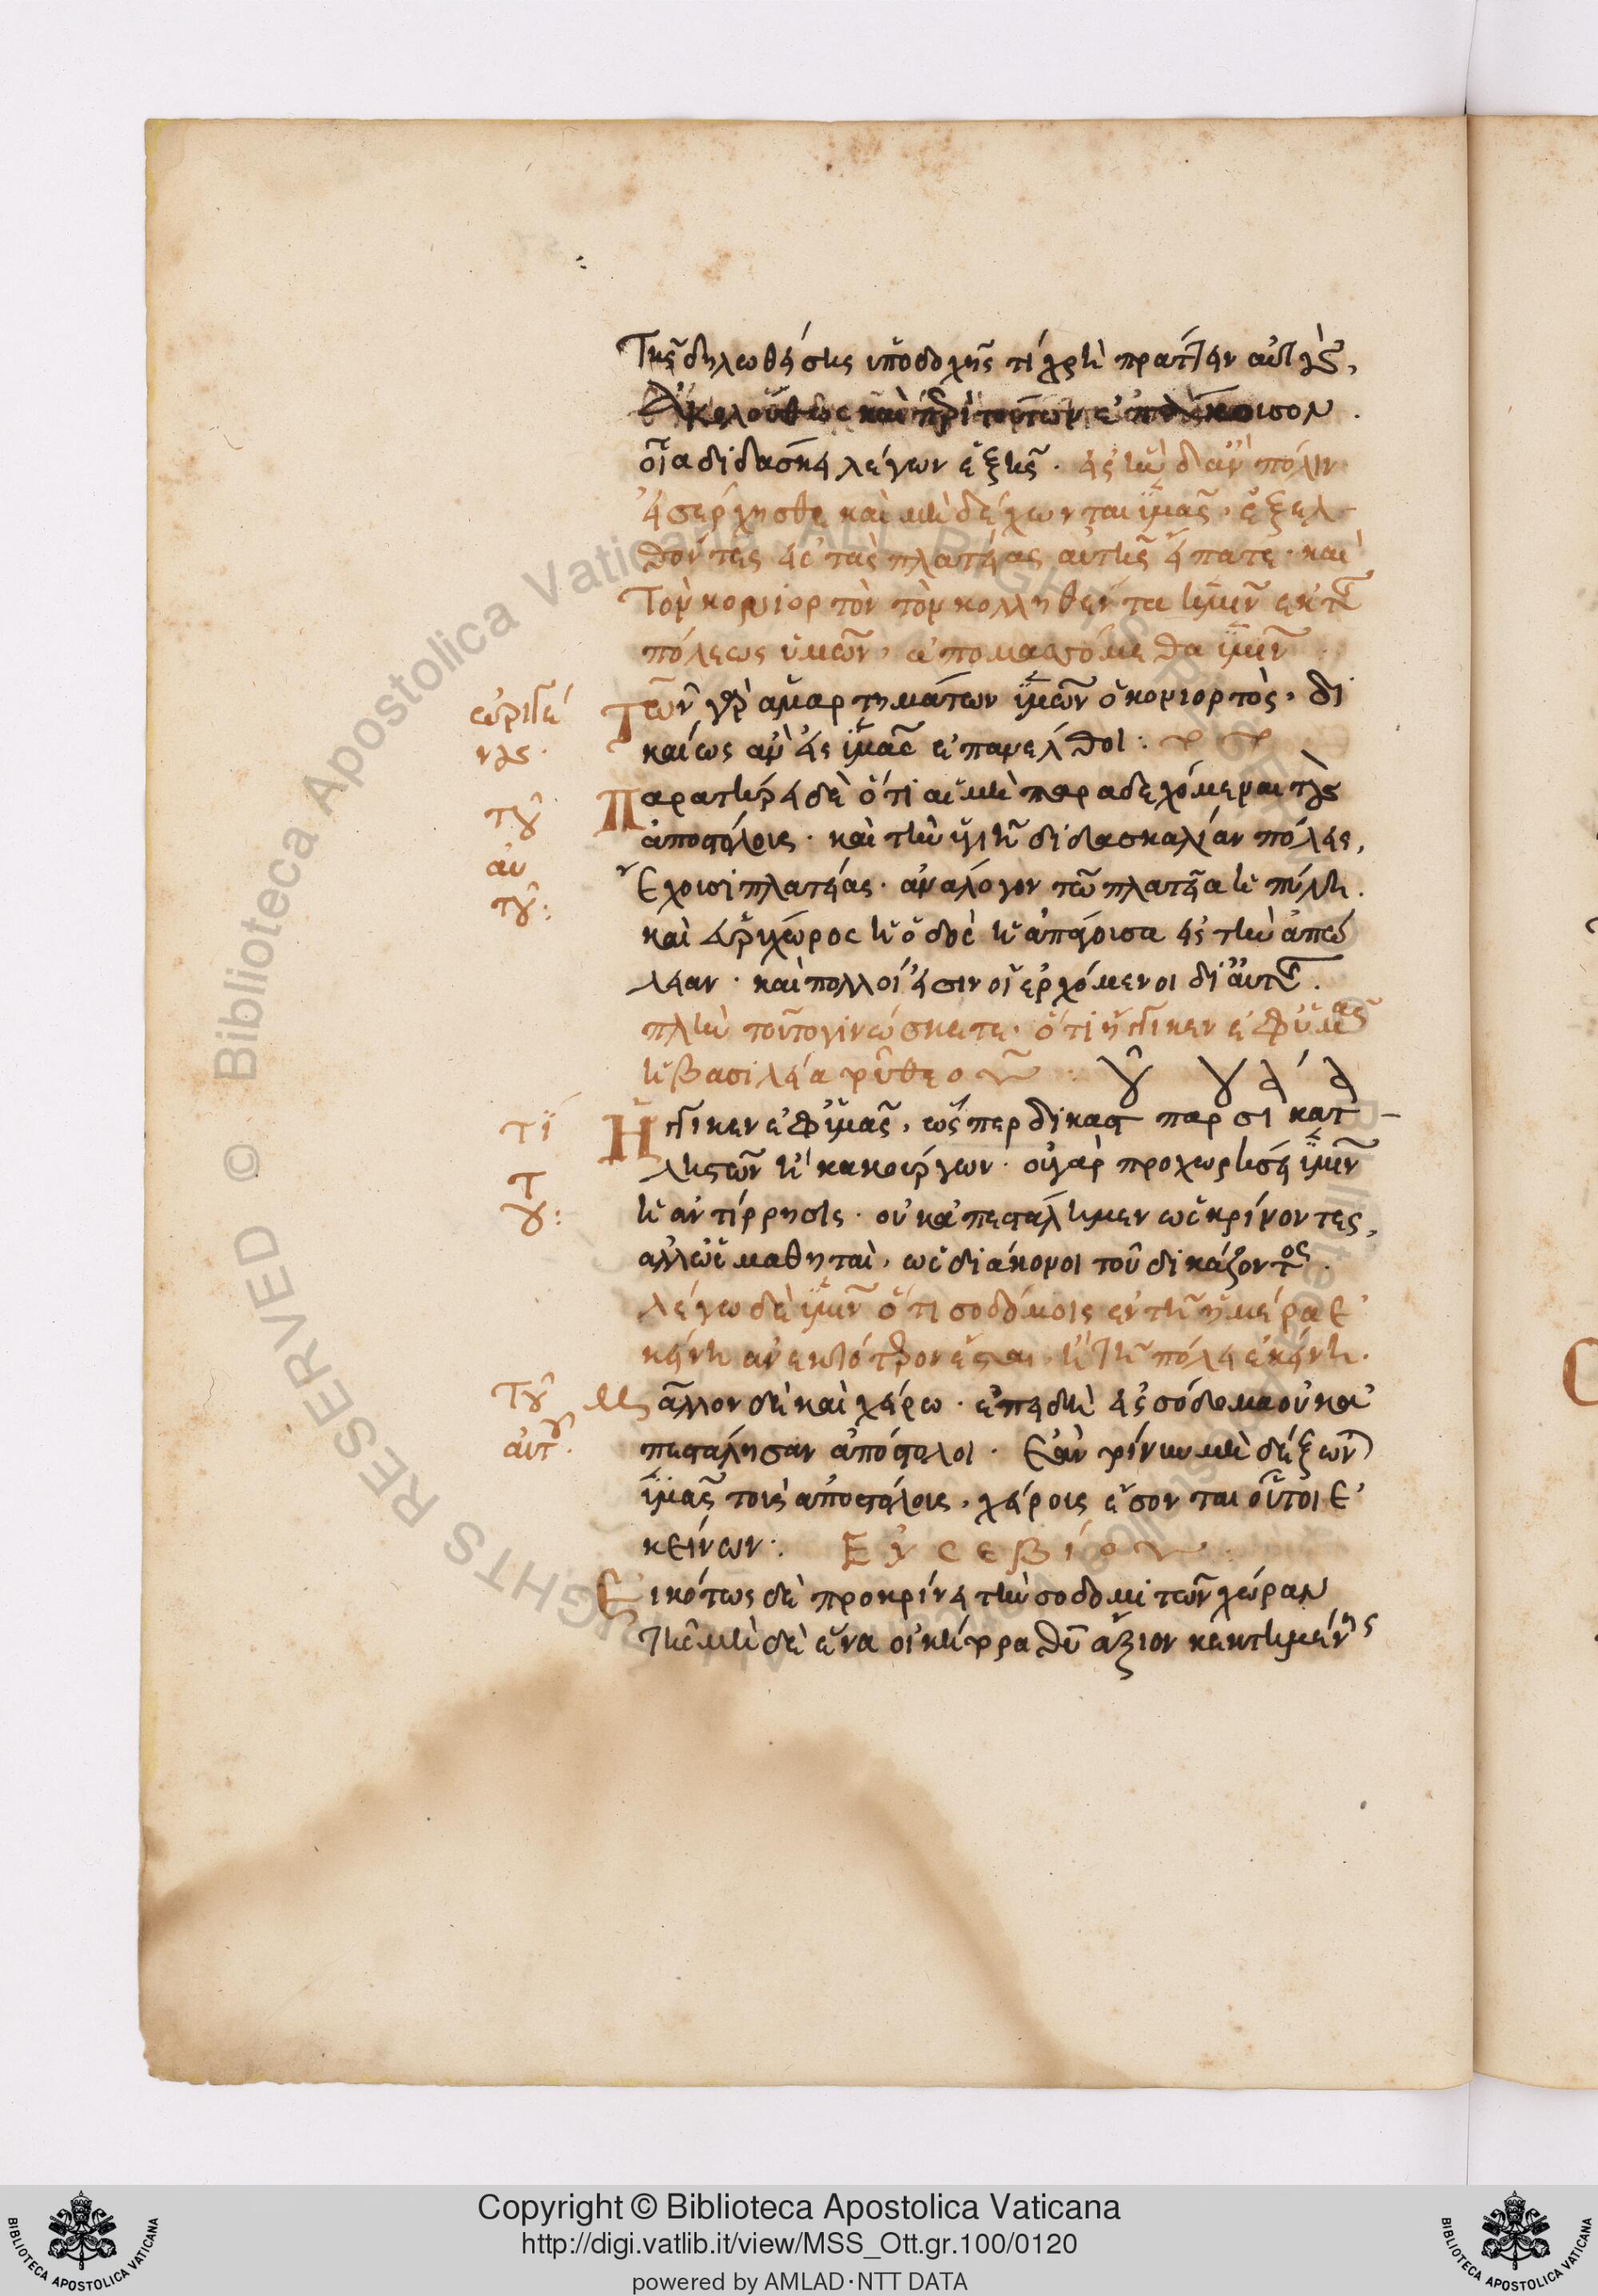 Τῆς δηλωθείσης ὑποδοχῆς τί χρὴ πράττειν αὐτοὺς,
Ἀκολούθως καὶ περὶ τούτων
οἷα διδάσκει λέγων ἑξῆς. εἰς ἣν δ' ἂν πόλιν
εἰσέρχησθε καὶ μὴ δέχωνται ὑμᾶς, ἐξελ-
θόντες εἰς τὰς πλατείας αὐτῆς εἴπατε. καὶ
Τὸν κονιορτὸν τὸν κολληθέντα ἡμῖν ἐκ τῆς
πόλεως ὑμῶν, ἀπομασσόμεθα ὑμῖν
ὠριγέ
νους.
Τῶν γὰρ ἁμαρτημάτων ὑμῶν ὁ κονιορτὸς, δι
καίως ἂν εἰς ὑμᾶς ἐπανέλθοι:
τοῦ
αυ
τοῦ:
Παρατήρει δὲ ὅτι αἱ μὴ παραδεχόμεναι τοὺς
ἀποστόλους. καὶ τὴν ὑγιῆ διδασκαλίαν πόλεις,
ἔχουσι πλατείας. ἀνάλογον τῶ πλατεῖα ἡ πύλη.
καὶ εὐρύχωρος ἡ ὁδὸς ἡ ἀπάγουσα εἰς τὴν ἀπώ
λειαν. καὶ πολλοί εἰσιν οἱ ἐρχόμενοι δι' αὐτῆς.
πλὴν τοῦτο γινώσκετε, ὅτι ἤγγικεν ἐφ' ὑμᾶς
ἡ βασιλεία τοῦ θεοῦ
τί
τ
ου:
Ἤγγικεν ἐφ' ὑμᾶς, ὥσπερ δικαστ
ληστῶν ἢ κακούργων. οὐ γὰρ προχωρήσει ὑμῖν
ἡ ἀντίρρησις. οὐκ ἀπεστάλημεν ὡς κρίνοντες,
ἀλλ' ὡς μαθηταὶ, ὡς διάκονοι τοῦ δικάζοντος.
λέγω δὲ ὑμῖν ὅτι σοδόμοις ἐν τῆ ἡμέρα ἐ
κείνη ἀνεκτότερον ἔσται, ἢ τῆ πόλει ἐκείνη.
τοῦ
αὐτοῦ.
Μᾶλλον δὲ καὶ χείρω. ἐπειδὴ εἰς σόδομα οὐκ ἀ
πεστάλησαν ἀπόστολοι. Ἐὰν τίνυν μὴ δέξων
ὑμᾶς τοὺς ἀποστόλους, χείρους ἔσονται οὗτοι ἐ
κείνων:. Εὐσεβίου
Εἰκότως δὲ προκρίνει τὴν σοδομιτῶν χώραν
τῆς μὴ δὲ ἕνα οἰκήτορα θεοῦ ἄξιον κεκτημένης